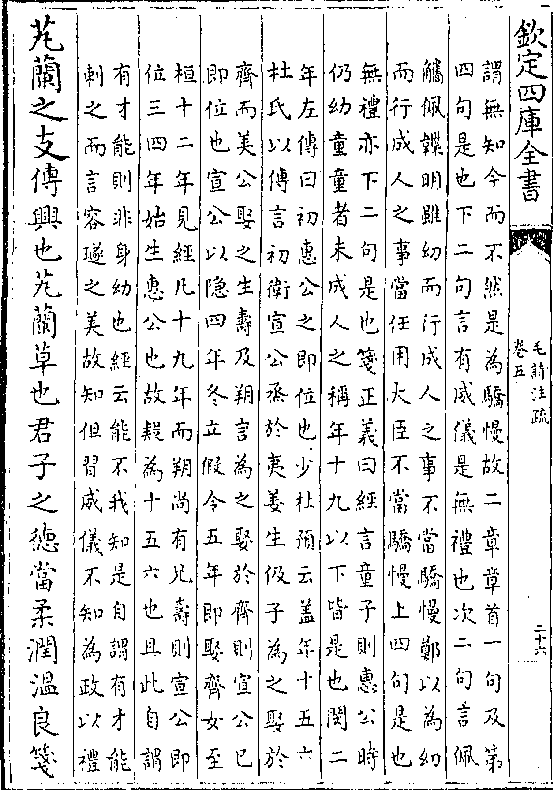 欽定四庫全書
毛詩注疏
卷五
二十六
謂無知今而不然是為驕慢故二章章首一句及第
四句是也下二句言有威儀是無禮也次二句言佩
觿佩韘明雖幼而行成人之事不當驕慢鄭以為幼
而行成人之事當任用大臣不當驕慢上四句是也
無禮亦下二句是也箋正義曰經言童子則惠公時
仍幼童童者未成人之稱年十九以下皆是也閔二
年左傳曰初惠公之即位也少杜預云盖年十五六
杜氏以傳言初衛宣公烝於夷姜生伋子為之娶於
齊而美公娶之生壽及朔言為之娶於齊則宣公已
即位也宣公以隐四年冬立假令五年即娶齊女至
桓十二年見經凡十九年而朔尚有兄壽則宣公即
位三四年始生惠公也故疑為十五六也且此自謂
有才能則非身幼也經云能不我知是自謂有才能
刺之而言容璲之美故知但習威儀不知為政以禮
芄蘭之支傳興也芄蘭草也君子之徳當柔潤溫良箋